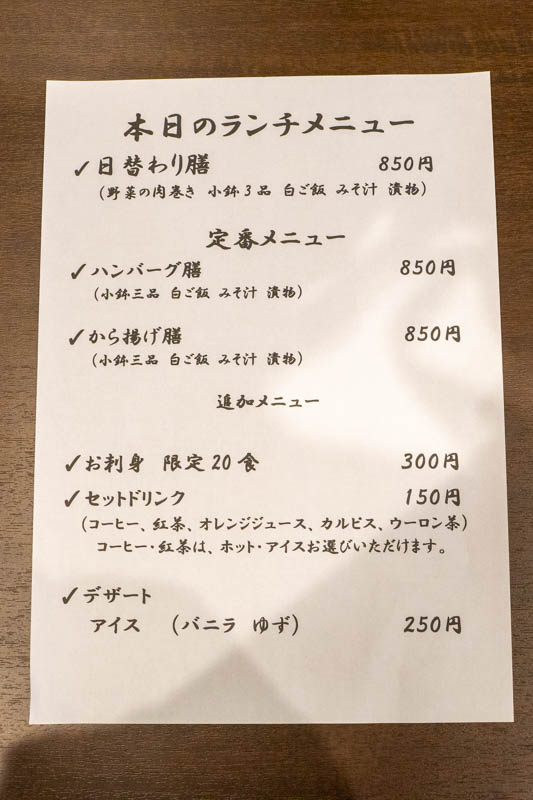 本日のランチメニュー
✓日替わり膳 850円
(野菜の肉巻き 小鉢3品 白ご飯 みそ汁 漬物)
定番メニュー
✓ハンバーグ膳 850円
(小鉢三品 白ご飯 みそ汁 漬物)
✓から揚げ膳 850円
(小鉢三品 白ご飯 みそ汁 漬物)
追加メニュー
✓お刺身 限定20食 300円
✓セットドリンク 150円
(コーヒー、紅茶、オレンジジュース、カルピス、ウーロン茶)
コーヒー・紅茶は、ホット・アイスお選びいただけます。
✓デザート
アイス (バニラ ゆず) 250円